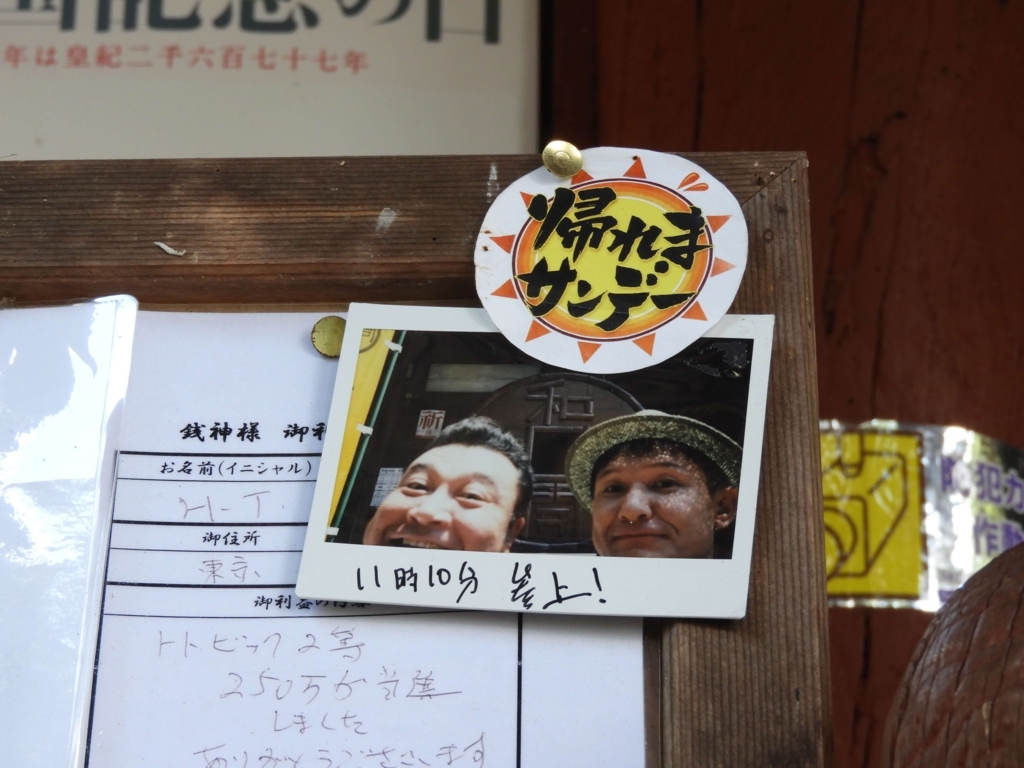 記念の日
年は皇紀二千六百七十七年
帰れま
サンデー
祈
和
11時10分 参上!
銭神様 御利
お名前(イニシャル)
H-T.
御住所
東京
御利益の内容
トトビック2等
250万が当選
しました
ありがとうございます
防犯カ
作動